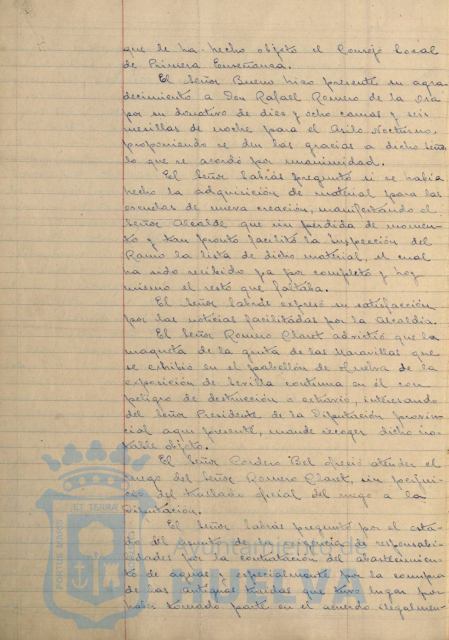 que se ha hecho objeto el Consejo Local
de Primera Enseñanza.
El Señor Bueno hizo presente su agra-
decimiento a Don Rafael Romero de la Osa
por su donativo de diez y ocho camas y seis
mesillas de noche para el Asilo Nocturno,
proponiendo se den las gracias a dicho Señor
lo que se acordó por unanimidad.
El Señor preguntó si se había
hecho la adquisición de material para las
escuelas de nueva creación, manifestando el
Señor Alcalde que sin pérdida de momen-
to y tan pronto facilitó la Inspección del
Ramo la lista de dicho material, el cual
ha sido recibido ya por completo y hoy
mismo el resto que faltaba.
El Señor expresó su satisfacción
por las noticias facilitadas por la Alcaldía.
El Señor Romero Claret advirtió que la
maqueta de la gruta de las Maravillas que
se exhibió en el pabellón de Huelva de la
exposición de Sevilla continua en él con
peligro de destrucción o extravío, interesando
del Señor Presidente de la Diputación provin-
cial aquí presente, mande recoger dicho no-
table objeto.
El Señor Cordero Bel ofreció atender el
ruego del Señor Romero Claret, sin perjui-
cio del traslado oficial del ruego a la
Diputación.
El Señor preguntó por el esta-
do del asunto de la exigencia de responsabi-
lidades por la contratación del abastecimien-
to de aguas y especialmente por la compra
de las antiguas traídas que tuvo lugar por
haber tomado parte en el acuerdo ilegalmen-
Ayuntamiento de
HUELVA
PORTUS MARIS
ET TERRAE